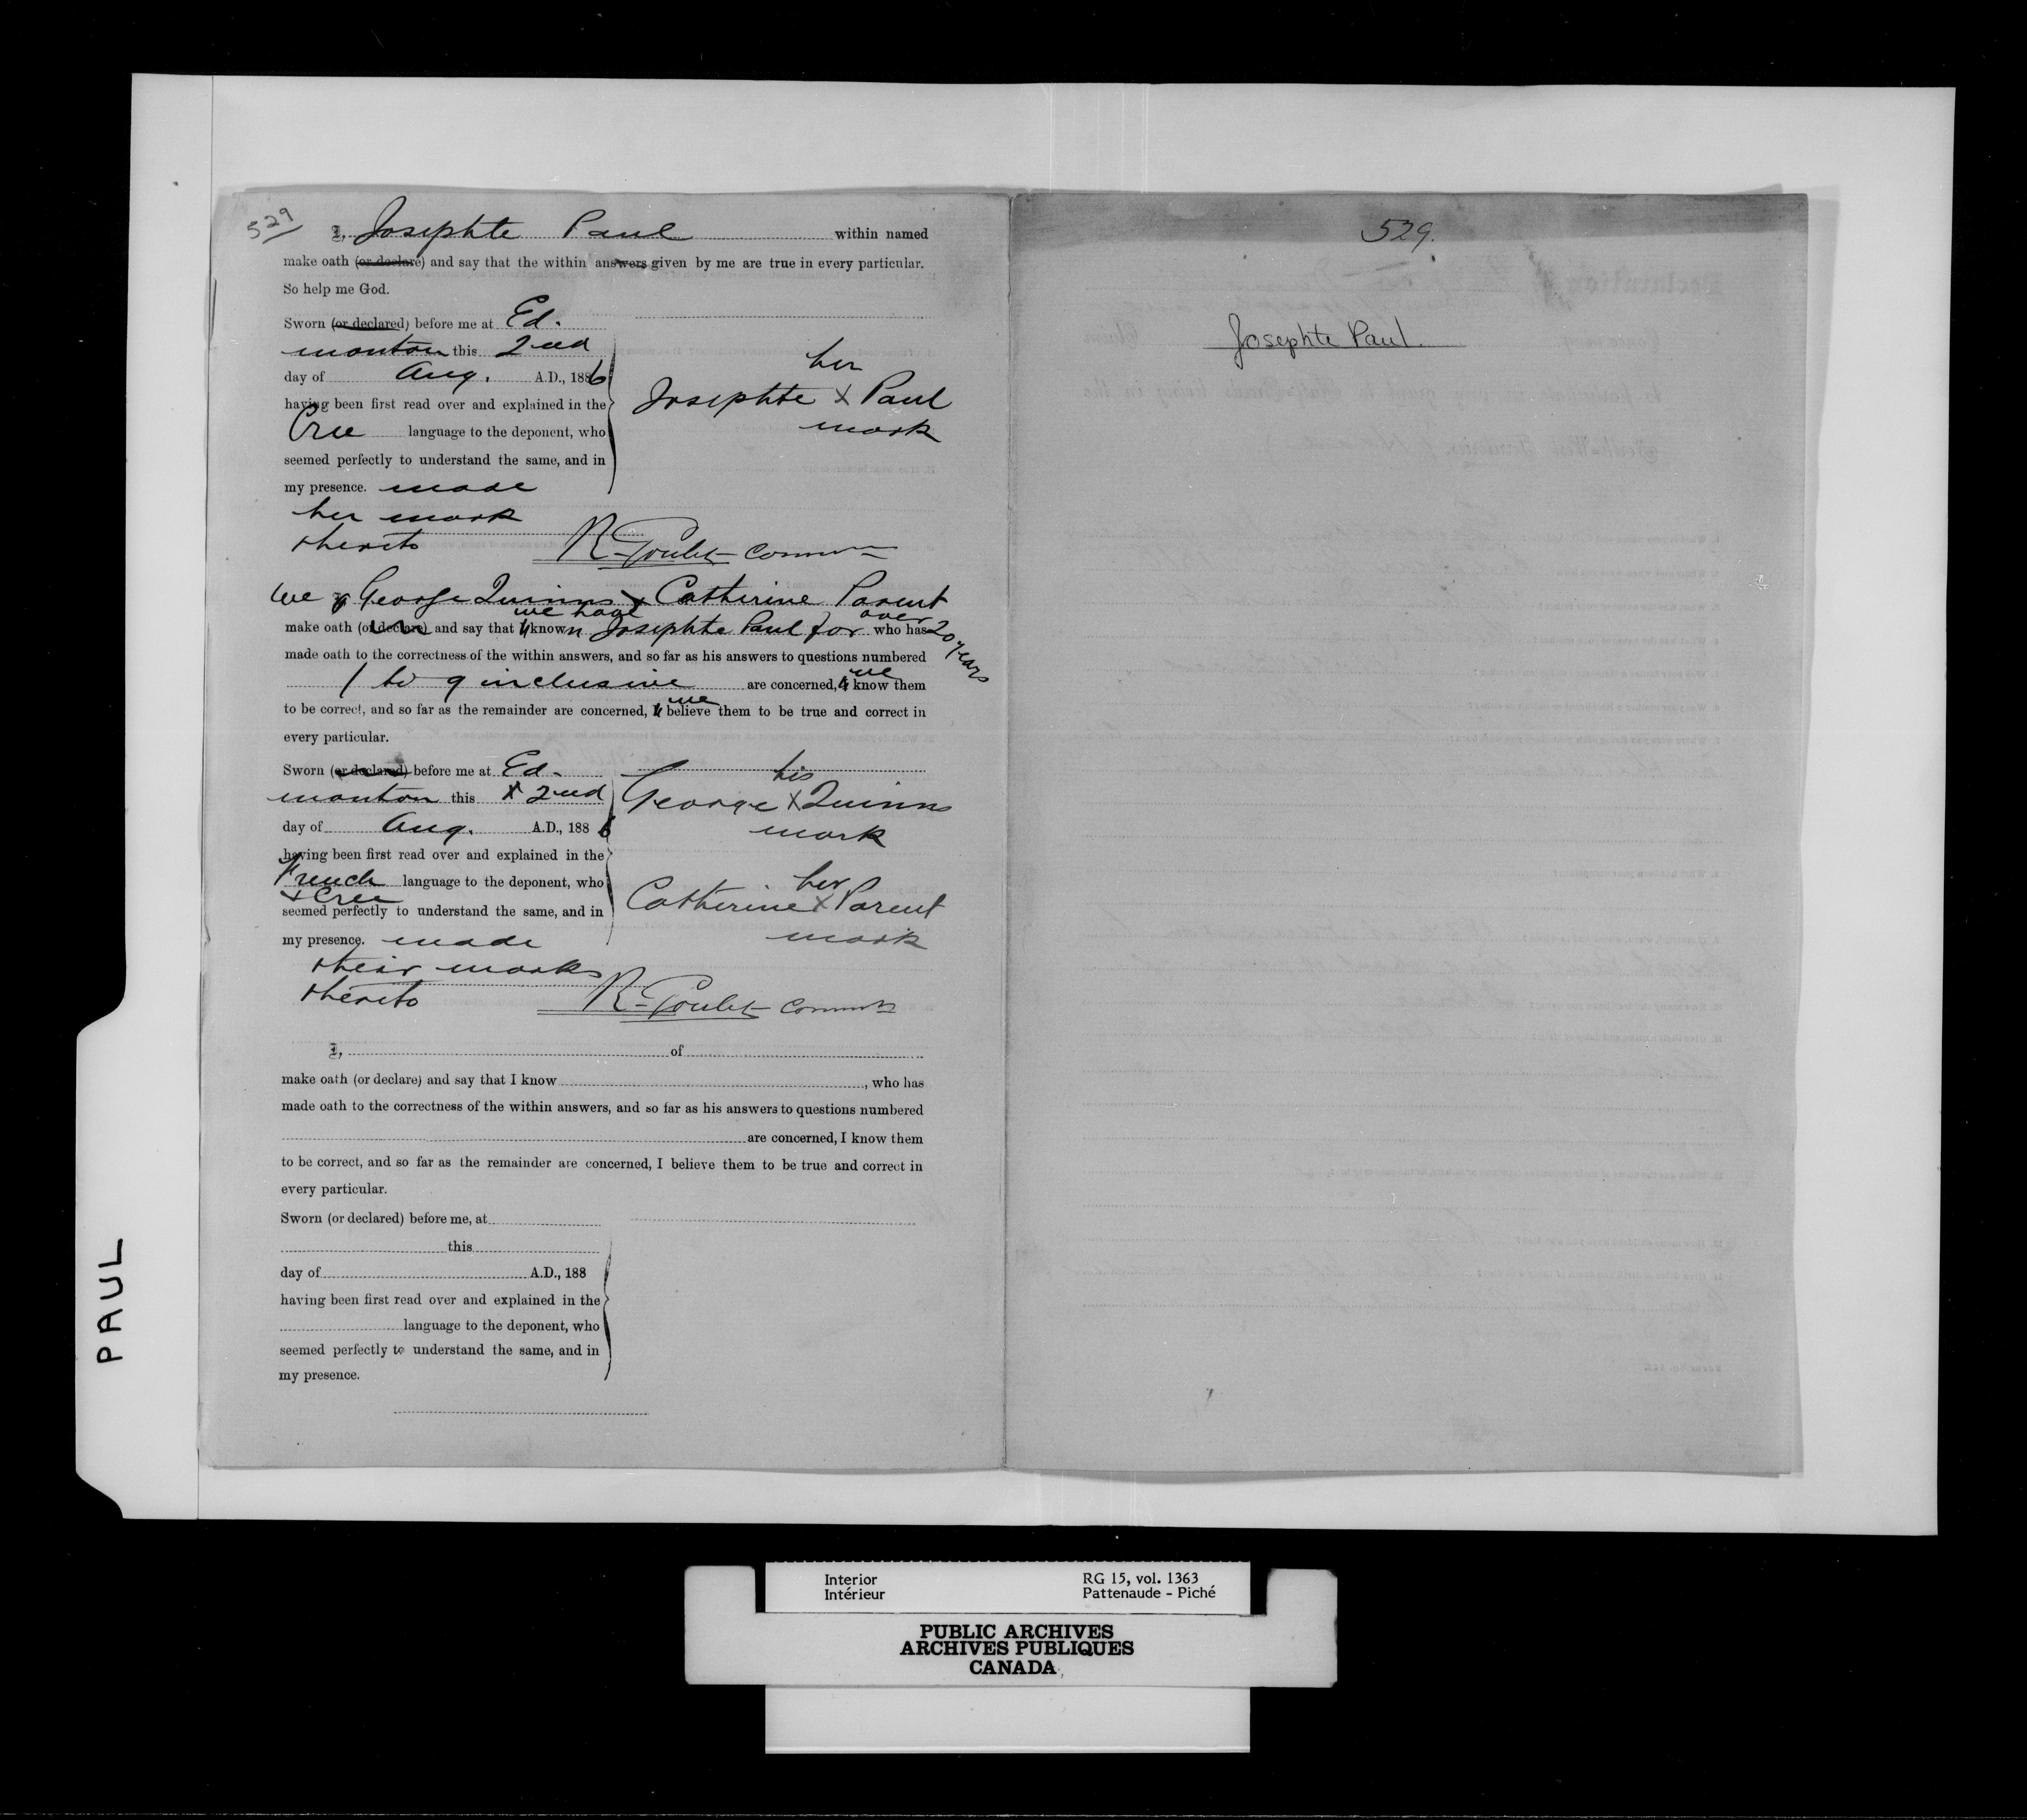 529
I, Josephte Paul within named
make oath (or declare) and say that the within answers given by me are true in every particular.
So help me God.
Sworn (or declared) before me at Ed-
monton this 2nd
day of Aug. A.D., 1886
having been first read over and explained in the
Cree language to the deponent, who
seemed perfectly to understand the same, and in
my presence. made
her mark
thereto
her
Josephte X Paul
mark
R. Goulet
We George Quinns & Catherine Parent
make oath (or declare) and say that we have known Josephte Paul for over 20 years who has
made oath to the correctness of the within answers, and so far as his answers to questions numbered
1 to 9 inclusive are concerned, we know them
to be correct, and so far as the remainder are concerned, we believe them to be true and correct in
every particular.
Sworn (or declared) before me at Ed-
monton this 2nd
day of Aug. A.D., 1886
having been first read over and explained in the
French language to the deponent, who
& Cree
seemed perfectly to understand the same, and in
my presence. made
their marks
thereto
his
George X Quinns
mark
her
Catherine X Parent
mark
R. Goulet
I, of
make oath (or declare) and say that I know , who has
made oath to the correctness of the within answers, and so far as his answers to questions numbered
are concerned, I know them
to be correct, and so far as the remainder are concerned, I believe them to be true and correct in
every particular.
Sworn (or declared) before me, at
this
day of A.D., 188
having been first read over and explained in the
language to the deponent, who
seemed perfectly to understand the same, and in
my presence.
529.
Josephte Paul.
PAUL
Interior
Intérieur
RG 15, vol. 1363
Pattenaude - Piché
PUBLIC ARCHIVES
ARCHIVES PUBLIQUES
CANADA